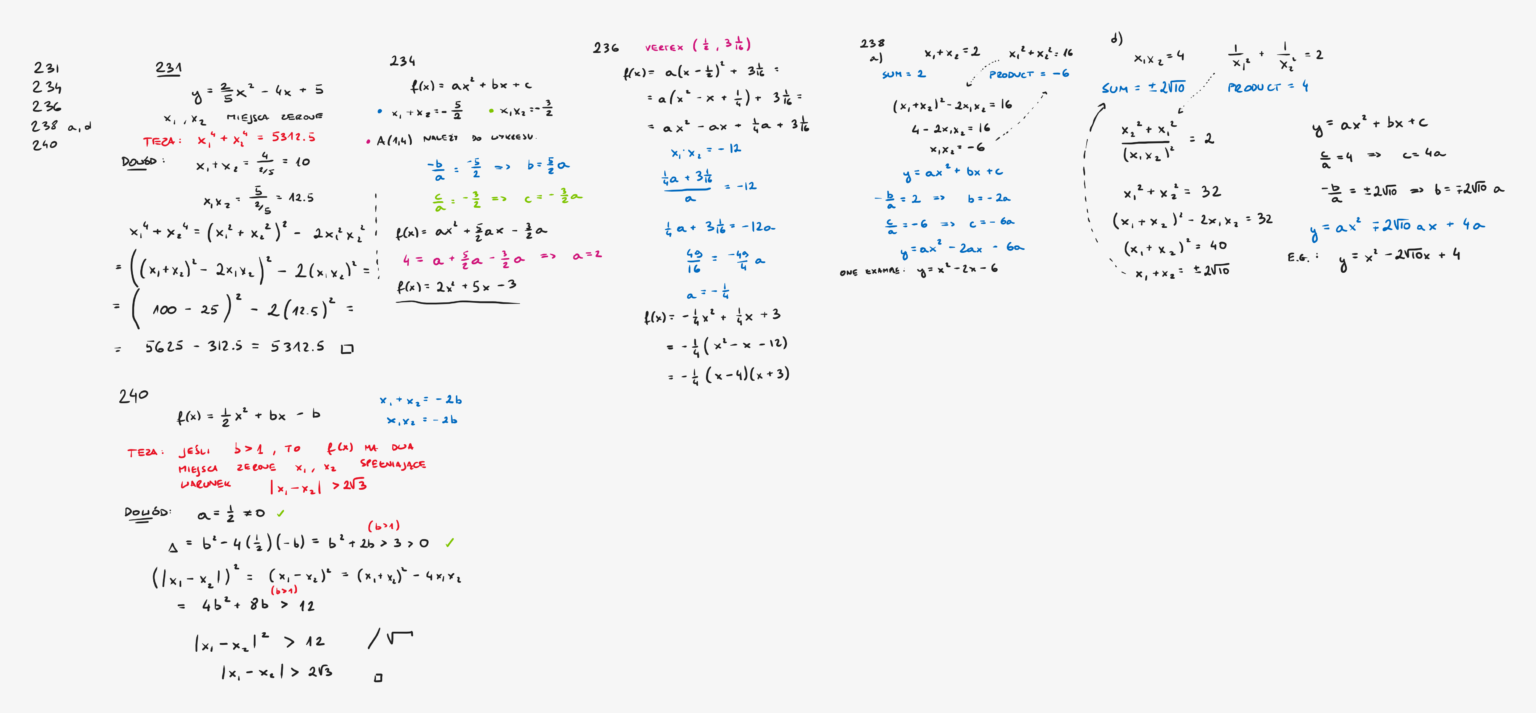 231
234
236
238 a,d
240
231
y = 2/5 x² - 4x + 5
x₁, x₂ MIEJSCA ZEROWE
TEZA: x₁⁴ + x₂⁴ = 5312.5
DOWÓD: x₁ + x₂ = 4/(2/5) = 10
x₁x₂ = 5/(2/5) = 12.5
x₁⁴ + x₂⁴ = (x₁² + x₂²)² - 2x₁²x₂²
= ((x₁+x₂)² - 2x₁x₂)² - 2(x₁x₂)² =
= (100 - 25)² - 2(12.5)² =
= 5625 - 312.5 = 5312.5 □
234
f(x) = ax² + bx + c
• x₁ + x₂ = -5/2 • x₁x₂ = -3/2
• A(1,4) NALEŻY DO WYKRESU.
-b/a = -5/2 => b = 5/2 a
c/a = -3/2 => c = -3/2 a
f(x) = ax² + 5/2 ax - 3/2 a
4 = a + 5/2 a - 3/2 a => a = 2
f(x) = 2x² + 5x - 3
236 VERTEX (1/2, 3 1/16)
f(x) = a(x - 1/2)² + 3 1/16 =
= a(x² - x + 1/4) + 3 1/16 =
= ax² - ax + 1/4 a + 3 1/16
x₁·x₂ = -12
(1/4 a + 3 1/16)/a = -12
1/4 a + 3 1/16 = -12a
49/16 = -49/4 a
a = -1/4
f(x) = -1/4 x² + 1/4 x + 3
= -1/4 (x² - x - 12)
= -1/4 (x-4)(x+3)
238
a) x₁+x₂ = 2 x₁²+x₂² = 16
SUM = 2 PRODUCT = -6
(x₁+x₂)² - 2x₁x₂ = 16
4 - 2x₁x₂ = 16
x₁x₂ = -6
y = ax² + bx + c
-b/a = 2 => b = -2a
c/a = -6 => c = -6a
y = ax² - 2ax - 6a
ONE EXAMPLE: y = x² - 2x - 6
d) x₁x₂ = 4 1/x₁² + 1/x₂² = 2
SUM = ±2√10 PRODUCT = 4
(x₂² + x₁²)/(x₁x₂)² = 2
x₁² + x₂² = 32
(x₁ + x₂)² - 2x₁x₂ = 32
(x₁ + x₂)² = 40
x₁ + x₂ = ±2√10
y = ax² + bx + c
c/a = 4 => c = 4a
-b/a = ±2√10 => b = ∓2√10 a
y = ax² ∓ 2√10 ax + 4a
E.G.: y = x² - 2√10x + 4
240
f(x) = 1/2 x² + bx - b
x₁ + x₂ = -2b
x₁x₂ = -2b
TEZA: JEŚLI b>1, TO f(x) MA DWA
MIEJSCA ZEROWE x₁, x₂ SPEŁNIAJĄCE
WARUNEK |x₁-x₂| > 2√3
DOWÓD: a = 1/2 ≠ 0 ✓
(b>1)
Δ = b² - 4(1/2)(-b) = b² + 2b > 3 > 0 ✓
(|x₁ - x₂|)² = (x₁-x₂)² = (x₁+x₂)² - 4x₁x₂
(b>1)
= 4b² + 8b > 12
|x₁ - x₂|² > 12 /√
|x₁ - x₂| > 2√3 □